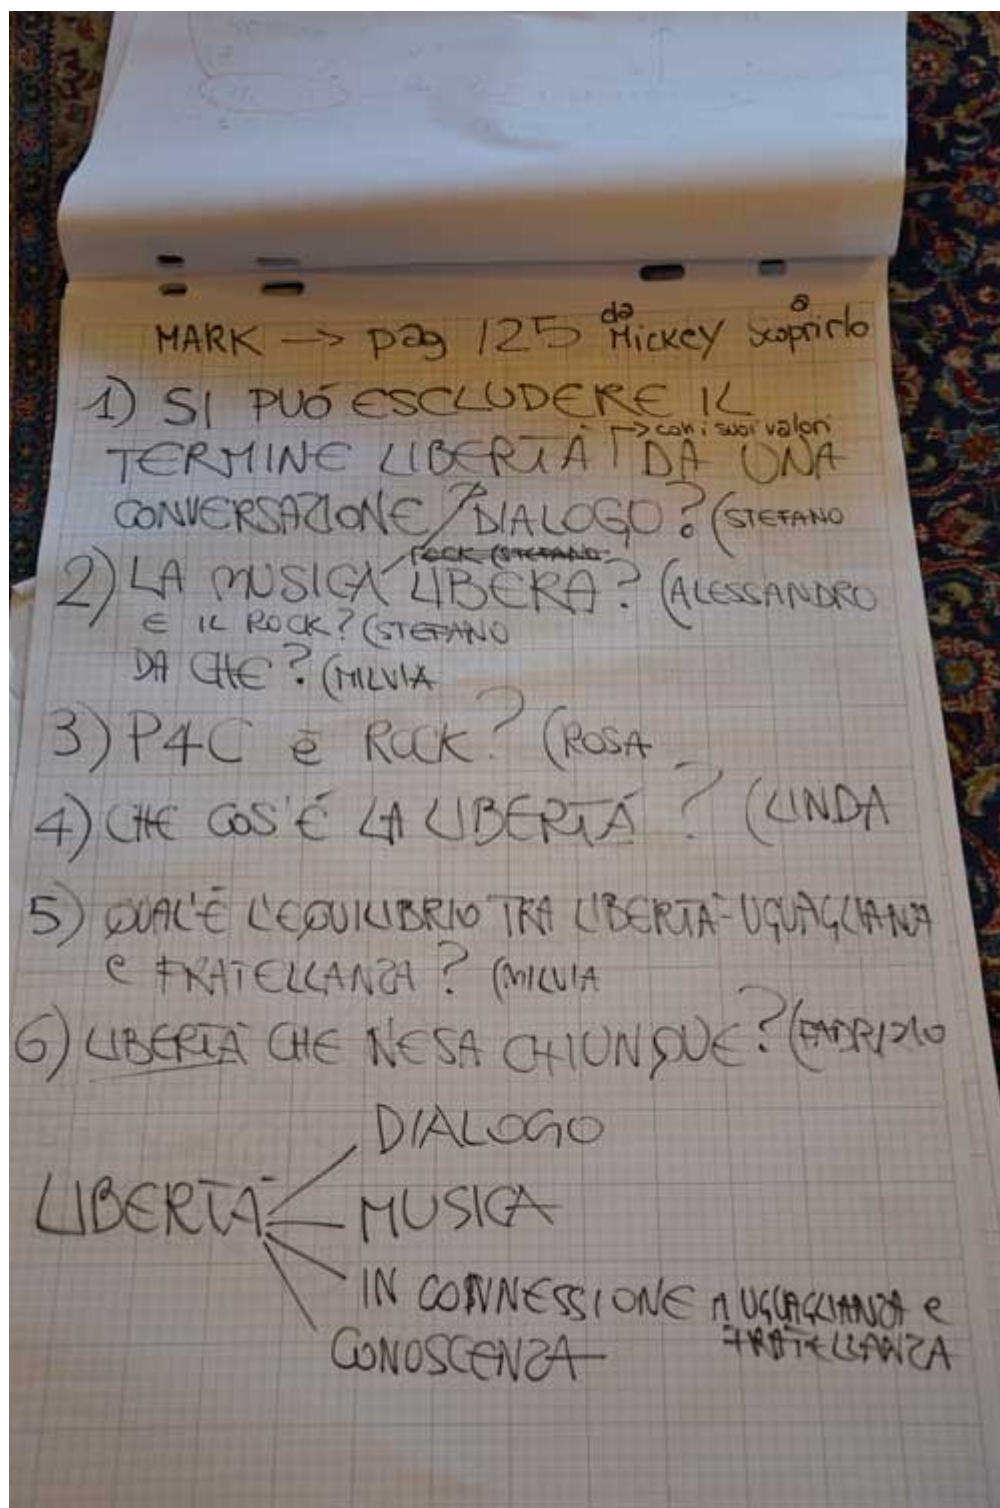 MARK → pag 125 da Mickey a scoprirlo
1) SI PUÓ ESCLUDERE IL
TERMINE LIBERTÀ → con i suoi valori DA UNA
CONVERSAZIONE / DIALOGO? (STEFANO
ROCK (STEFANO
2) LA MUSICA LIBERA? (ALESSANDRO
E IL ROCK? (STEFANO
DA CHE? (MILVIA
3) P4C è ROCK? (ROSA
4) CHE COS'É LA LIBERTÁ? (LINDA
5) QUAL'È L'EQUILIBRIO TRA LIBERTÀ-UGUAGLIANZA
e FRATELLANZA? (MILVIA
6) LIBERTÀ CHE NE SA CHIUNQUE? (FABRIZIO
DIALOGO
LIBERTÀ
MUSICA
IN CONNESSIONE A UGUAGLIANZA e
FRATELLANZA
CONOSCENZA